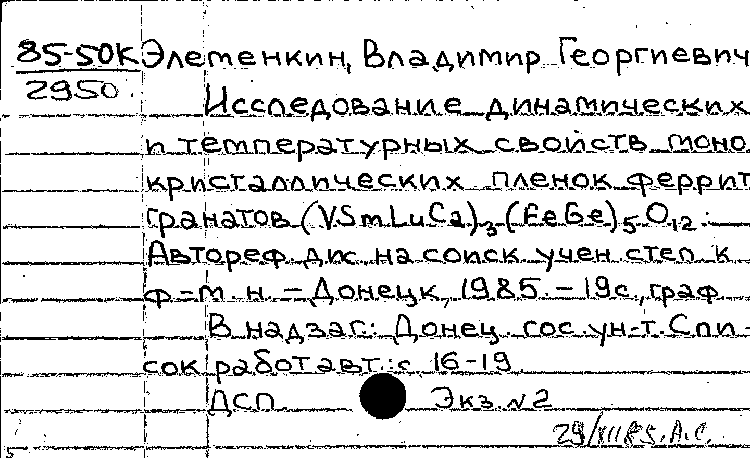 85-50К Элементкин, Владимир Георгиевич
2950.
Исследование динамических
и температурных свойств моно
кристаллических пленок феррит
гранатов (YSmLuCa)3(FeGe)5O12:
Автореф. дис. на соиск. учен. степ. к.
ф-м.н. – Донецк, 1985. – 19 с., граф.
В надзаг.: Донец. гос. ун-т. Спи-
сок работ авт.: с. 16-19
ДСП. Экз. №2
29/XII 85. А.С.
5